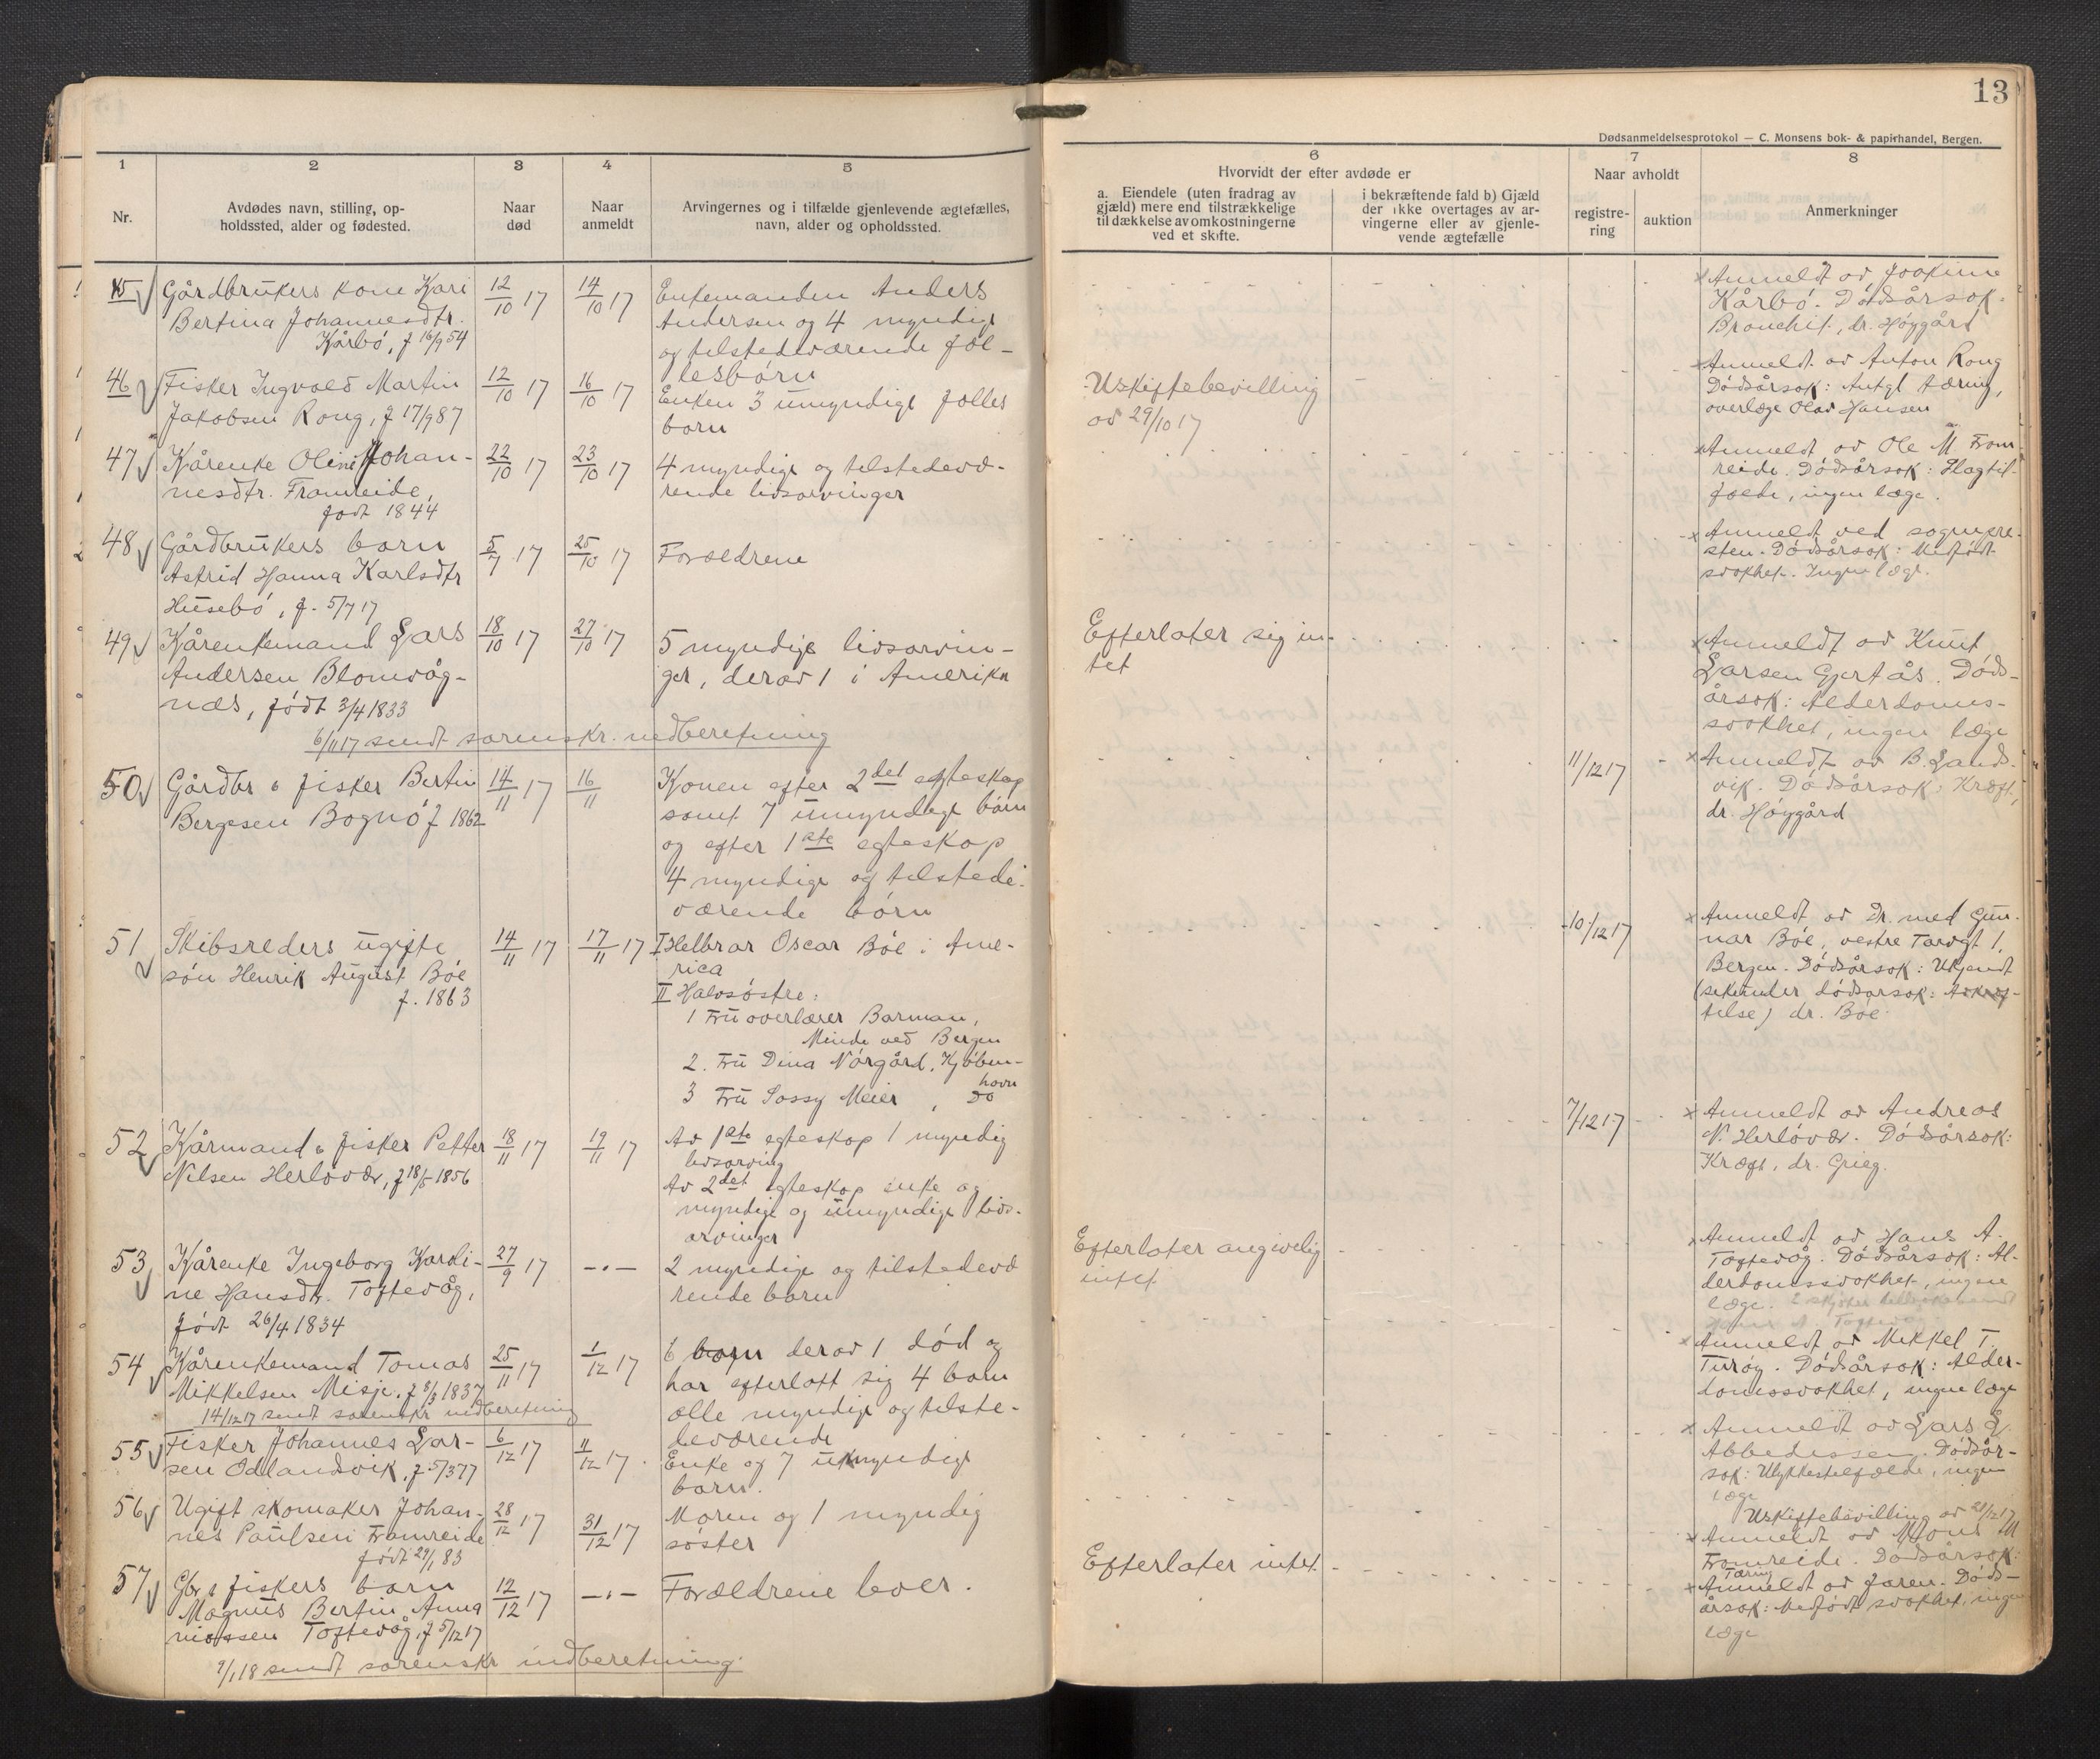 13
Dødsanmeldelsesprotokol — C. Monsens bok- & papirhandel, Bergen.
1
2
3
4
5
Nr.
Avdødes navn, stilling, op-
holdssted, alder og fødested.
Naar
død
Naar
anmeldt
Arvingernes og i tilfælde gjenlevende ægtefælles,
navn, alder og opholdssted.
6
Hvorvidt der efter avdøde er
a. Eiendele (uten fradrag av
gjæld) mere end tilstrækkelige
til dækkelse av omkostningerne
ved et skifte.
i bekræftende fald b) Gjæld
der ikke overtages av ar-
vingerne eller av gjenle-
vende ægtefælle
7
Naar avholdt
registre-
ring
auktion
8
Anmerkninger
45 Gårdbrukers kone Kari
Bertina Johannesdtr.
Kårbø, f 16/9 54
12/10 17
14/10 17
Enkemanden Anders
Andersen og 4 myndige
og tilstedeværende fæl-
lesbørn
Anmeldt av Joakime
Kårbø. Dødsårsak.
Bronchit, dr. Høygård
46 Fisker Ingvald Martin
Jakobsen Rong, f 17/9 87
12/10 17
16/10 17
Enken 3 umyndige fælles
born
Uskiftebevilling
av 29/10 17
Anmeldt av Anton Rong
Dødsårsak: Antgl tæring,
overlæge Olav Hansen
47 Kårenke Oline Johan-
nesdtr. Framreide,
født 1844
22/10 17
23/10 17
4 myndige og tilstedevæ-
rende livsarvinger
Anmeldt av Ole M. Fram-
reide. Dødsårsak: Slagtil-
fælde, ingen læge.
48 Gårdbrukers barn
Astrid Hanna Karlsdtr
Husebø, f. 5/7 17
5/7 17
25/10 17
Forældrene
Anmeldt ved sognepre-
sten. Dødsårsak: Medfødt
svakhet. Ingen læge.
49 Kårenkemand Lars
Andersen Blomvåg-
næs, født 3/4 1833
18/10 17
27/10 17
5 myndige livsarvin-
ger, derav 1 i Amerika
Efterlater sig in-
tet
Anmeldt av Knut
Larsen Gjertås. Døds-
årsak: Alderdoms-
svakhet, ingen læge
6/11 17 sendt sorenskr. indberetning
50 Gårdbr & fisker Bertin
Bergesen Bognø f 1862
14/11 17
16/11
Konen efter 2det egteskap
samt 7 umyndige børn
og efter 1ste egteskap
4 myndige og tilstede-
værende børn
11/12 17
Anmeldt av B. Lands-
vik. Dødsårsak: Kræft,
dr. Høygård
51 Skibsreders ugifte
søn Henrik August Bøe
f. 1863
14/11 17
17/11 17
I Helbror Oscar Bøe i Ame-
rica
II Halvsøstre:
1 Fru overlærer Barman,
Minde ved Bergen
2. Fru Dina Nørgård, Kjøben-
havn
3 Fru Sossy Meier, Do
10/12 17
Anmeldt av Dr. med Gun-
nar Bøe, vestre Torvgt 1,
Bergen. Dødsårsak: Ukjendt
(sekundær dødsårsak: Avkræf-
telse) dr. Bøe
52 Kårmand & fisker Petter
Nilsen Herløvær, f 18/5 1856
18/11 17
19/11 17
Av 1ste egteskap 1 myndig
livsarving
Av 2det egteskap enke og
myndige og umyndige livs-
arvinger
7/12 17
Anmeldt av Andreas
N. Herløvær. Dødsårsak:
Kræft, dr. Grieg.
53 Kårenke Ingeborg Karoli-
ne Hansdtr. Toftevåg,
født 26/4 1834
27/9 17
—•—
2 myndige og tilstedevæ
rende barn
Efterlater angivelig
intet
Anmeldt av Hans A.
Toftevåg. Dødsårsak: Al-
derdomssvakhet, ingen
læge.
54 Kårenkemand Tomas
Mikkelsen Misje, f 8/3 1837
25/11 17
1/12 17
6 barn derav 1 død og
har efterlatt sig 4 barn
alle myndige og tilste-
deværende
Anmeldt av Mikkel T.
Turøy. Dødsårsak: Alder-
domssvakhet, ingen læge
14/12 17 sendt sorenskr indberetning
55 Fisker Johannes Lar-
sen Oddlandsvik, f 5/3 77
6/12 17
11/12 17
Enke og 7 umyndige
barn.
Anmeldt av Lars L
Abbedissen. Dødsår-
sak: Ulykkestilfælde, ingen
læge
Uskiftebevilling av 21/12 17
56 Ugift skomaker Johan-
nes Paulsen Framreide
født 29/1 83
28/12 17
31/12 17
Moren og 1 myndig
søster
Anmeldt av Mons M
Framreide. Dødsårsak:
Tæring
57 Gbr & fiskers barn
Magnus Bertin Anna
niassen Toftevåg, f 5/12 17
12/12 17
—•—
Forældrene lever.
Efterlater intet
Anmeldt av faren. Døds-
årsak: Medfødt svakhet, ingen
læge
2/1 18 sendt sorenskr indberetning.